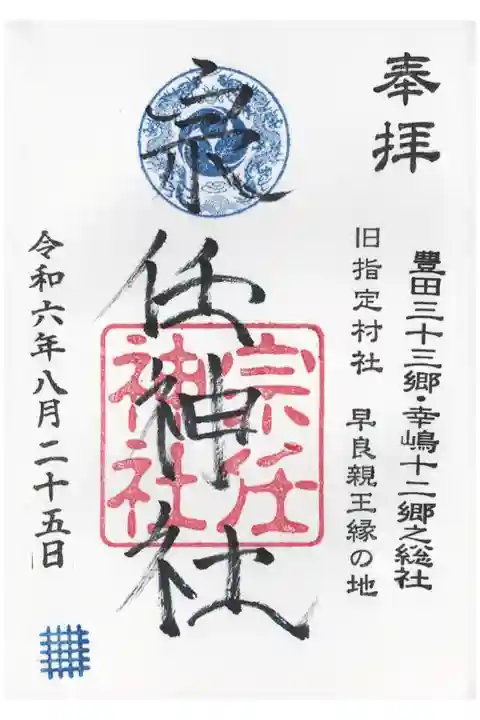 奉拝
豊田三十三郷・幸嶋十二郷之総社
旧指定村社　早良親王縁の地
宗任神社
宗任
神社
令和六年八月二十五日